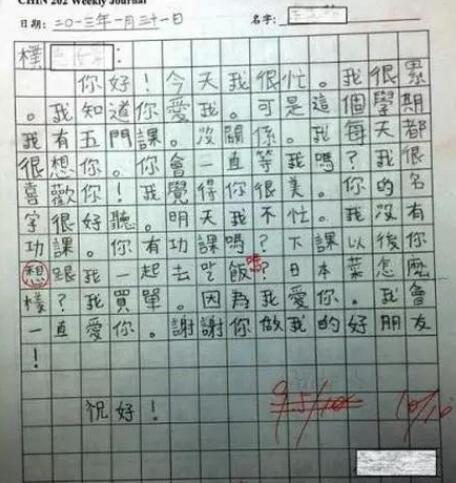 CHIN 202 Weekly Journal
日期: 二〇一三年一月三十一日 名字:
樸 :
你好!今天我很忙。我很累
。我知道你愛我。可是這個學期
我有五門課。沒關係。我每天都
很想你。你會一直等我嗎?我很
喜歡你!我覺得你很美。你的名
字很好聽。明天我不忙。我沒有
功課。你有功課嗎?下課以後你
想跟我一起去吃飯嗎?日本菜怎麼
樣?我買單。因為我愛你。我會
一直愛你。謝謝你做我的好朋友
!
祝好!
9.5/10 10/10